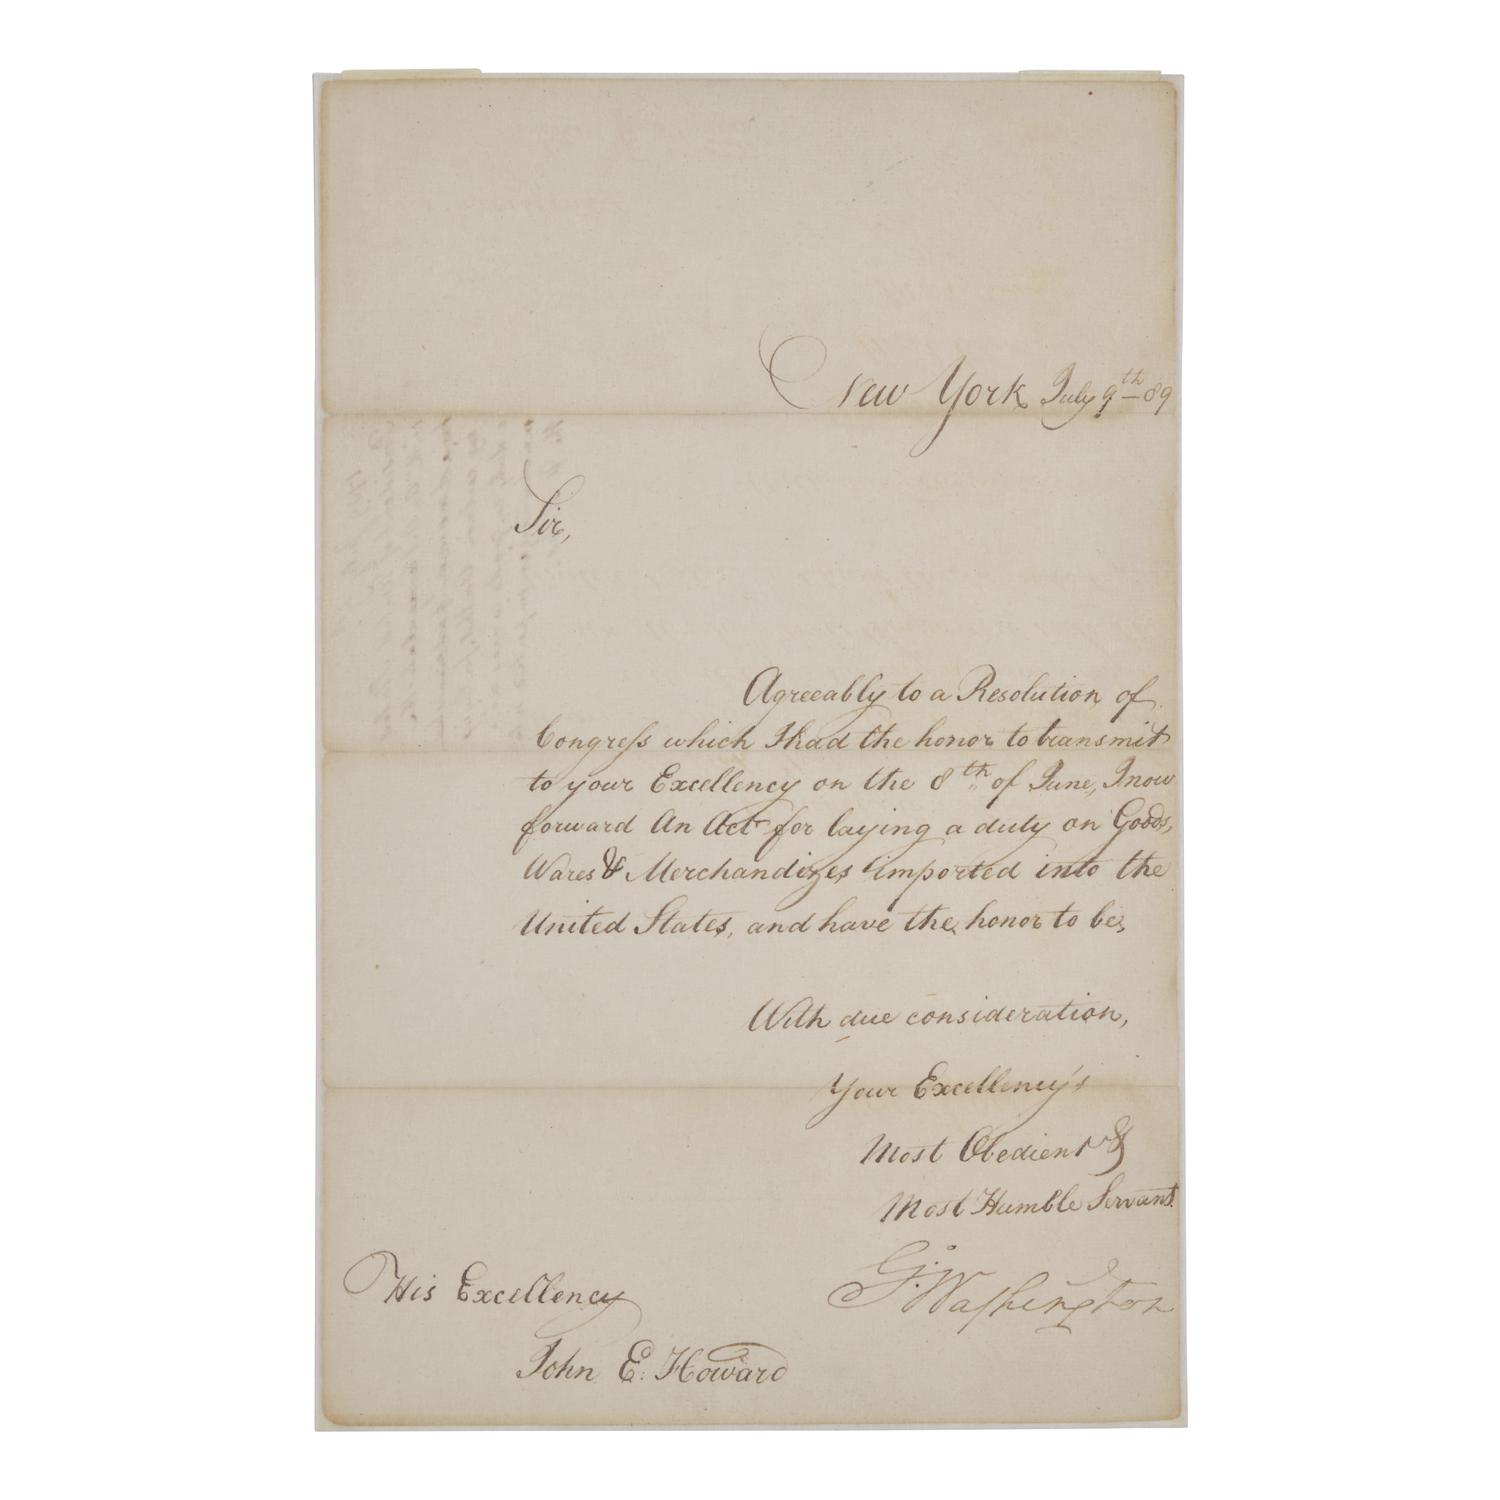 New York July 9th 89
Sir,
Agreeably to a Resolution of
Congress which I had the honor to transmit
to your Excellency on the 8th of June, I now
forward An Act for laying a duty on Goods,
Wares & Merchandizes imported into the
United States, and have the honor to be,
With due consideration,
Your Excellency's
Most Obedient &
Most Humble Servant
G: Washington
His Excellency
John E. Howard